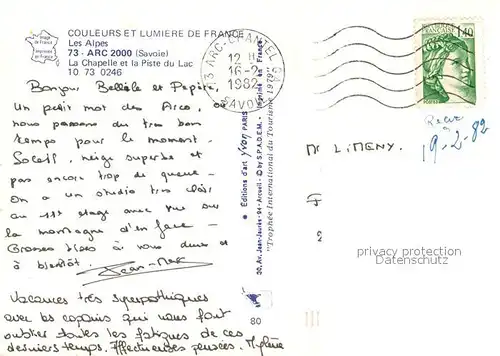 COULEURS ET LUMIERE DE FRANCE
Les Alpes
73 - ARC 2000 (Savoie)
La Chapelle et la Piste du Lac
10 73 0246
73 ARC-CHANTEL
12 H
16-2
1982
SAVOIE
1,40
Bonjour Belliole et Pépère,
Un petit mot des Arcs, où
nous passons du très bon
temps pour le moment.
Soleil, neige superbe et
pas encore trop de queue -
On a un studio très clair
au 11è étage avec vue sur
la montagne d'en face -
Grosses bises à vous deux et
à bientôt.
Jean-Marc
Vacances très sympathiques
avec les copains qui nous font
oublier toutes les fatigues de ces
derniers temps. Affectueuses pensées.
Editions d'art Yvon PARIS
30, Av. Jean-Jaurès-94-Arcueil - © by S.P.A.D.E.M. - Imprimé en France
"Trophée International du Tourisme 1979"
80
Mr LIMENY.
19-2-82
privacy protection
Datenschutz